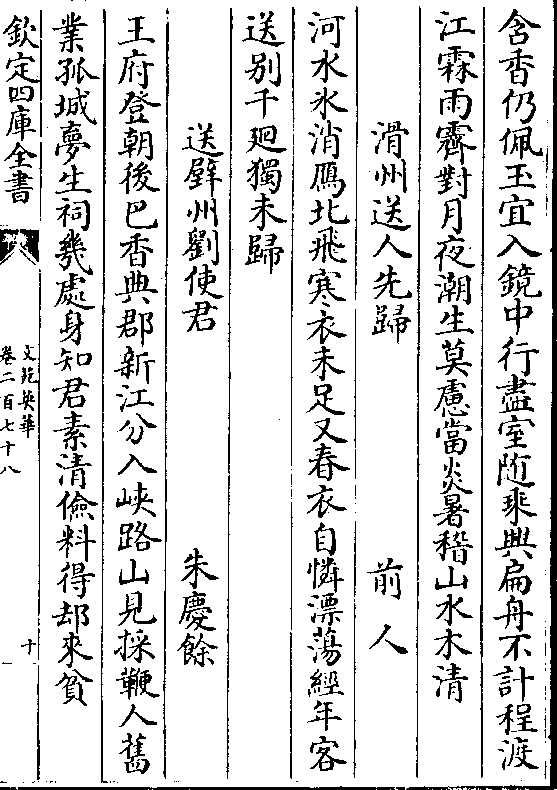 含香仍佩玉宜入鏡中行盡室随乘興扁舟不計程渡
江霖雨霽對月夜潮生莫慮當炎暑稽山水木清
滑州送人先歸 前人
河水氷消鴈北飛寒衣未足又春衣自憐漂蕩經年客
送别千廻獨未歸
送壁州劉使君 朱慶餘
王府登朝後巴香典郡新江分入峽路山見採鞭人舊
業孤城夢生祠幾處身知君素清儉料得却來貧
欽定四庫全書
文苑英華
卷二百七十八
十